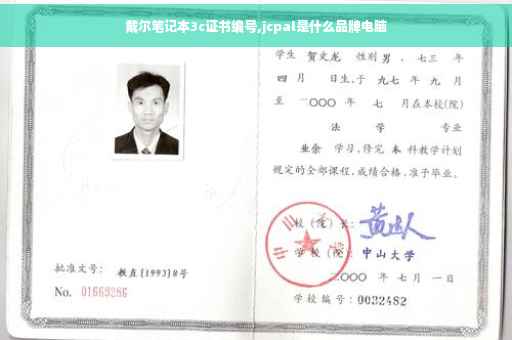 戴尔笔记本3c证书编号,jcpal是什么品牌电脑
学生 贺文龙 性别 男 、七三 年
四 月 日生,于 九七 年 九 月
至 二〇〇〇 年 七 月在本校(院)
法 学 专业
业余 学习,修完 本 科教学计划
规定的全部课程,成绩合格,准予毕业。
校(院)长:
学校(院): 中山大学
二〇〇〇 年 七 月 一 日
批准文号: 教直[1993]8号
No. 01669286
学校编号: 0032482